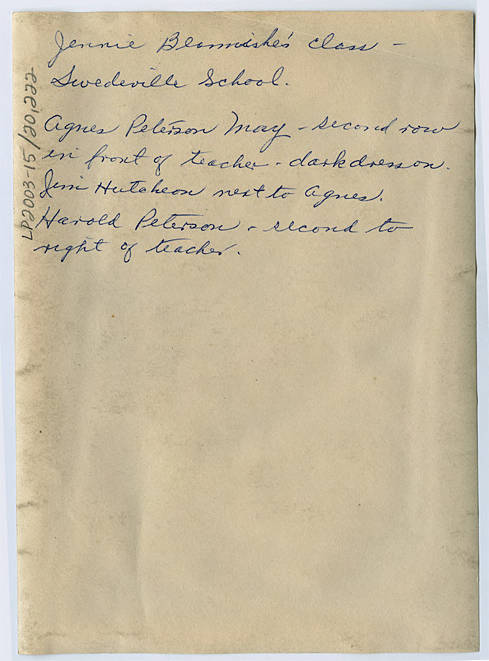 Jennie Beamishe's class -
Swedeville School.
Agnes Peterson May - second row
in front of teacher - dark dress on.
Jim Hutcheon next to Agnes.
Harold Peterson - second to
right of teacher.
LP2003-15/20,222